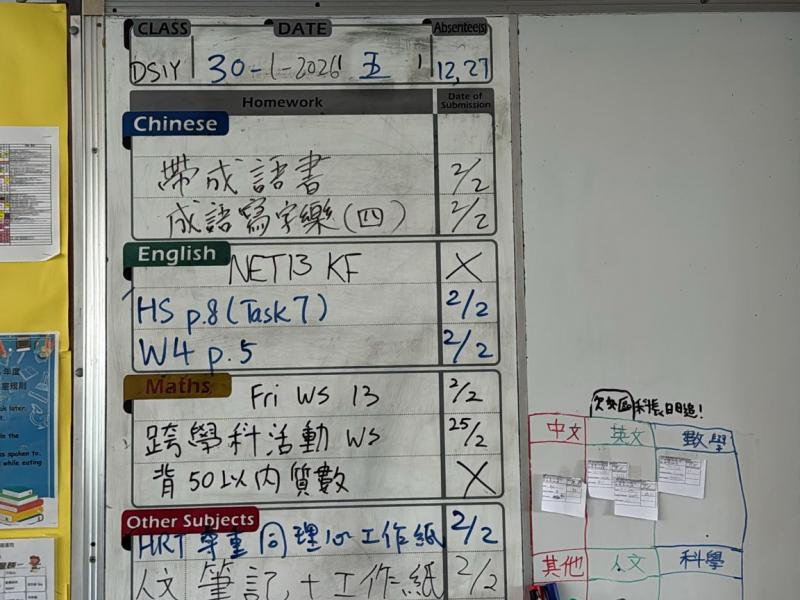 CLASS DATE Absentee(s)
DS1Y 30-1-2026 五 12, 27
Homework Date of Submission
Chinese
帶成語書 2/2
成語寫字樂(四) 2/2
English
NET13 KF X
HS p.8 (Task 7) 2/2
W4 p.5 2/2
Maths
Fri WS 13 2/2
跨學科活動 WS 25/2
背50以內質數 X
Other Subjects
HRT 尊重同理心工作紙 2/2
人文 筆記+工作紙 2/2
日日追!
中文 英文 數學
其他 人文 科學